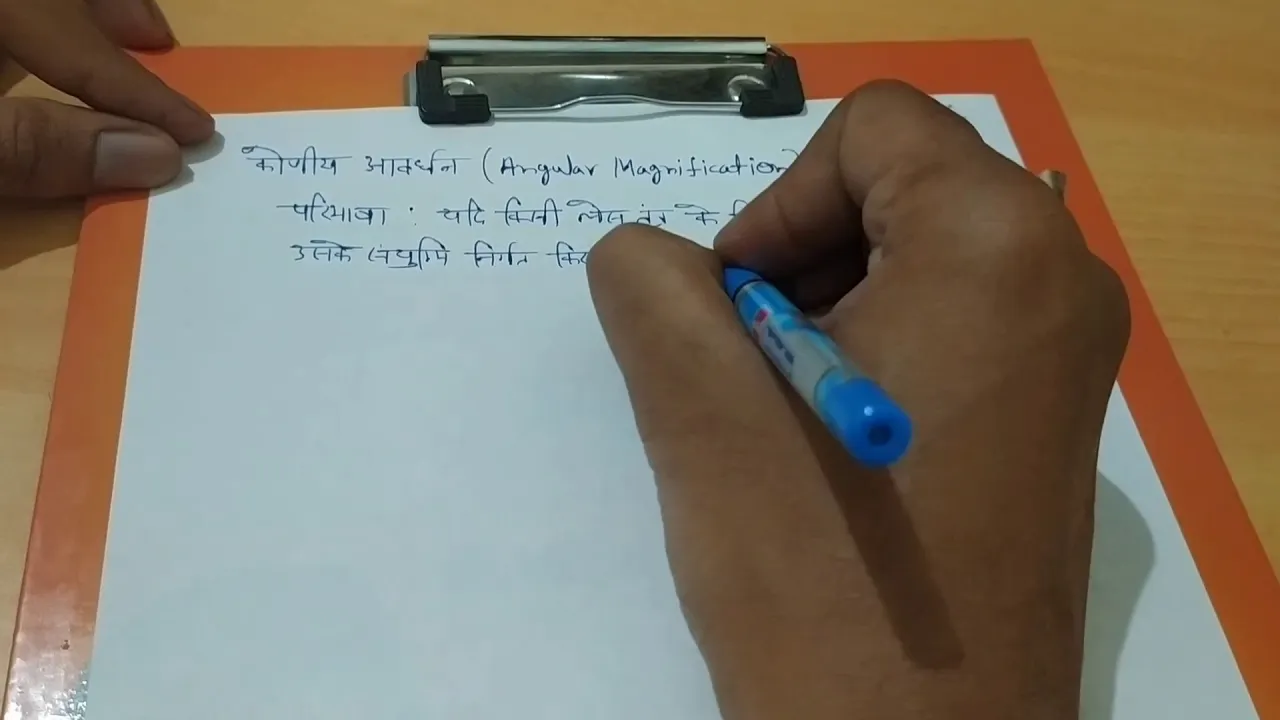 कोणीय आवर्धन (Angular Magnification)
परिभाषा : यदि किसी लेंस तंत्र के
उसके संयुग्मि निर्गत